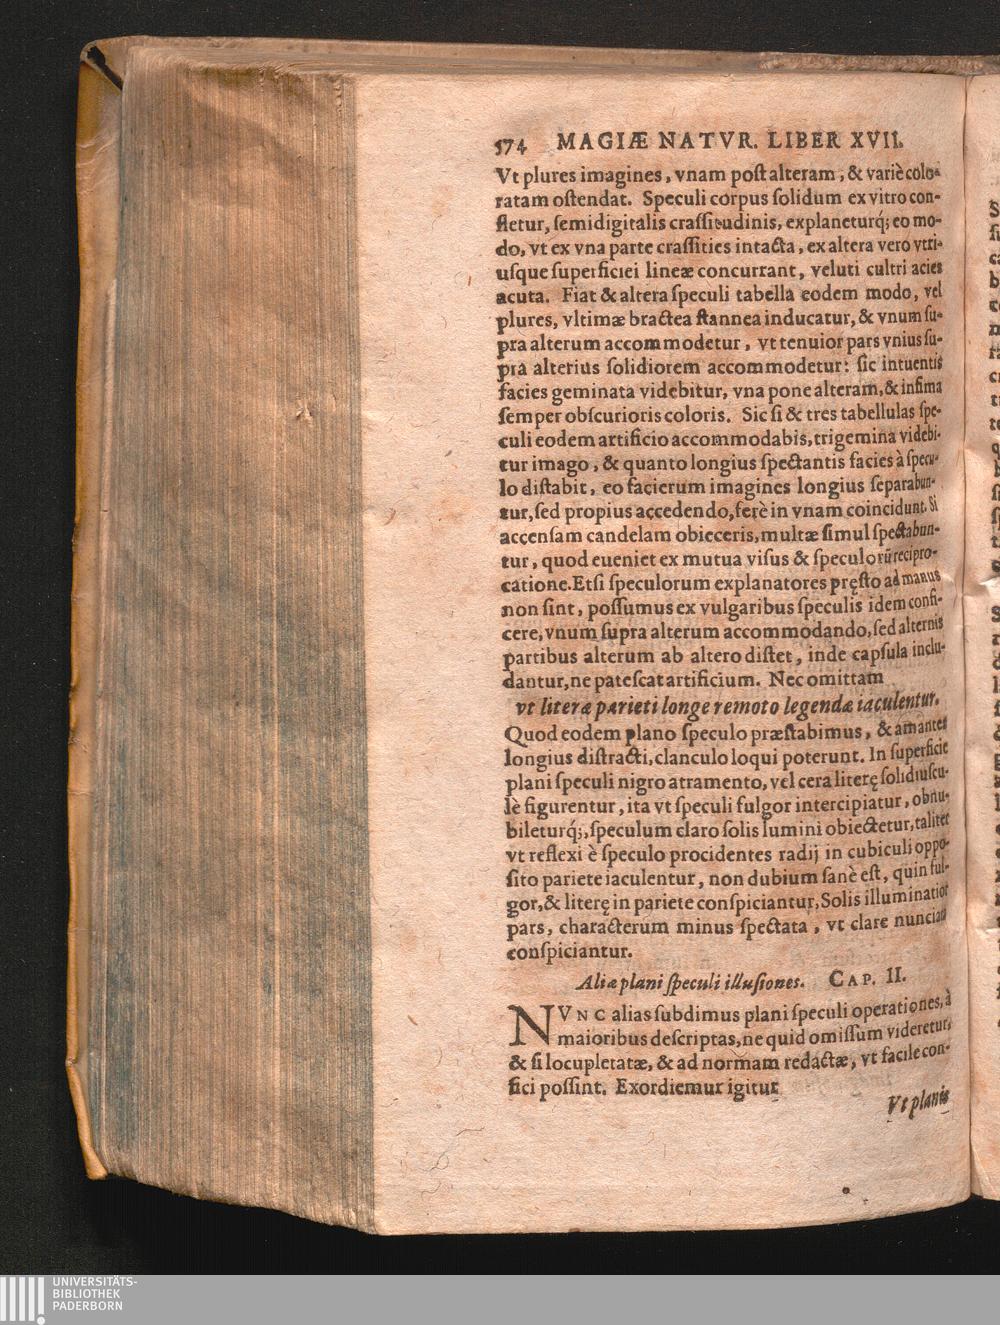 574 MAGIÆ NATVR. LIBER XVII.
Vt plures imagines, vnam poſt alteram, & variè colo-
ratam oſtendat. Speculi corpus ſolidum ex vitro con-
fletur, ſemidigitalis craſſitudinis, explaneturq́; eo mo-
do, vt ex vna parte craſſities intacta, ex altera vero vtri-
uſque ſuperficiei lineæ concurrant, veluti cultri acies
acuta. Fiat & altera ſpeculi tabella eodem modo, vel
plures, vltimæ bractea ſtannea inducatur, & vnum ſu-
pra alterum accommodetur, vt tenuior pars vnius ſu-
pra alterius ſolidiorem accommodetur: ſic intuentis
facies geminata videbitur, vna pone alteram, & infima
ſemper obſcurioris coloris. Sic ſi & tres tabellulas ſpe-
culi eodem artificio accommodabis, trigemina videbi-
tur imago, & quanto longius ſpectantis facies à ſpecu-
lo diſtabit, eo facierum imagines longius ſeparabun-
tur, ſed propius accedendo, ferè in vnam coincidunt. Si
accenſam candelam obieceris, multæ ſimul ſpectabun-
tur, quod eueniet ex mutua viſus & ſpeculorū recipro-
catione. Etſi ſpeculorum explanatores pręſto ad manus
non ſint, poſſumus ex vulgaribus ſpeculis idem confi-
cere, vnum ſupra alterum accommodando, ſed alternis
partibus alterum ab altero diſtet, inde capſula inclu-
dantur, ne pateſcat artificium. Nec omittam
vt literæ parieti longe remoto legendæ iaculentur.
Quod eodem plano ſpeculo præſtabimus, & amantes
longius diſtracti, clanculo loqui poterunt. In ſuperficie
plani ſpeculi nigro atramento, vel cera literę ſolidiuſcu-
lè figurentur, ita vt ſpeculi fulgor intercipiatur, obnu-
bileturq́;, ſpeculum claro ſolis lumini obiectetur, taliter
vt reflexi è ſpeculo procidentes radij in cubiculi oppo-
ſito pariete iaculentur, non dubium ſanè eſt, quin ful-
gor, & literę in pariete conſpiciantur, Solis illuminatior
pars, characterum minus ſpectata, vt clare nunciata
conſpiciantur.
Aliæ plani ſpeculi illuſiones. CAP. II.
NVNC alias ſubdimus plani ſpeculi operationes, à
maioribus deſcriptas, ne quid omiſſum videretur,
& ſi locupletatæ, & ad normam redactæ, vt facile con-
fici poſſint. Exordiemur igitur
Vt planis
UNIVERSITÄTS-
BIBLIOTHEK
PADERBORN